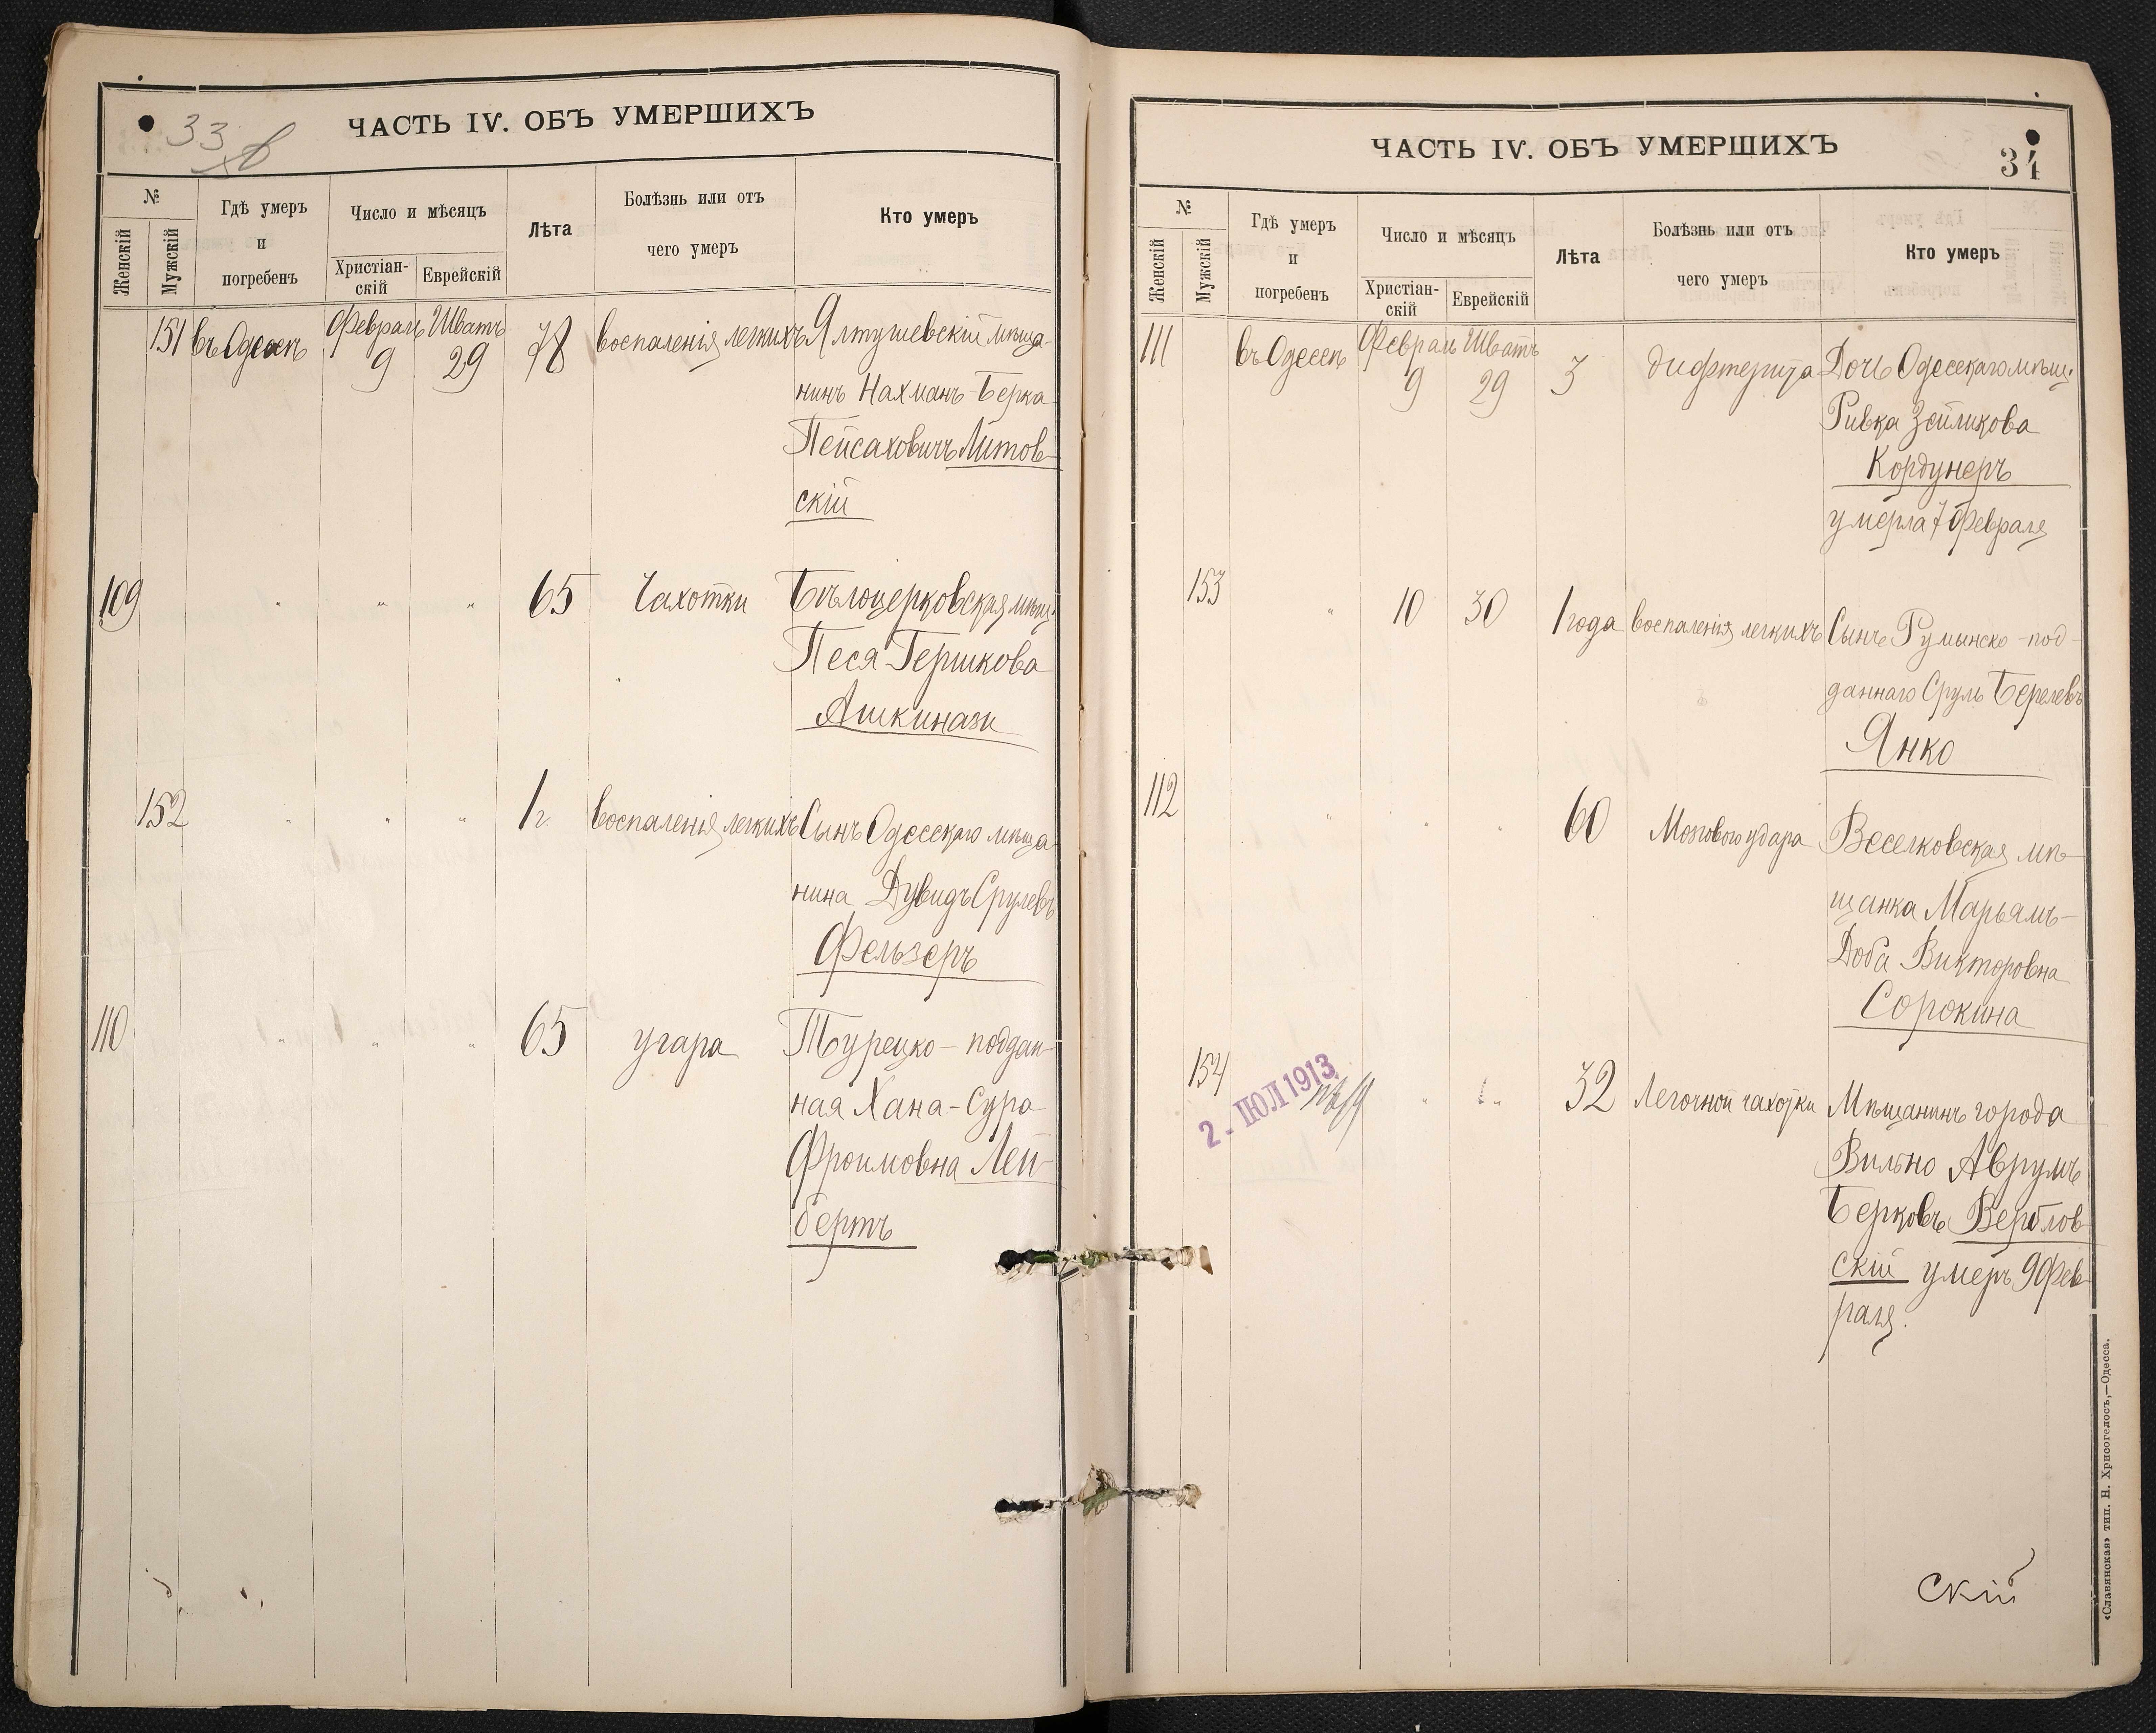 33
ЧАСТЬ IV. ОБЪ УМЕРШИХЪ
№
Женскій
Мужскій
Гдѣ умеръ
и
погребенъ
Число и мѣсяцъ
Христіан-
скій
Еврейскій
Лѣта
Болѣзнь или отъ
чего умеръ
Кто умеръ
151 въ Одессѣ Февраль Шватъ 78 воспаленія легкихъ Ялтушевскій мѣща-
9 29
нинъ Нахманъ-Берка
Пейсаховичъ Литов-
скій
109 " " " 65 Чахотки Бѣлоцерковская мѣщ.
Песя Гершкова
Ашкинази
152 " " " 1 г. воспаленія легкихъ Сынъ Одесскаго мѣща-
нина Дувидъ Срулевъ
Фельзеръ
110 " " " 65 угара Турецко-поддан-
ная Хана-Сура
Фроимовна Лей-
бертъ
34
ЧАСТЬ IV. ОБЪ УМЕРШИХЪ
№
Женскій
Мужскій
Гдѣ умеръ
и
погребенъ
Число и мѣсяцъ
Христіан-
скій
Еврейскій
Лѣта
Болѣзнь или отъ
чего умеръ
Кто умеръ
111 въ Одессѣ Февраль Шватъ 3 дифтерита Дочь Одесскаго мѣщ.
9 29
Ривка Зейликова
Кордунеръ
умерла 7 Февраля
153 " 10 30 1 года воспаленія легкихъ Сынъ Румынско-под-
даннаго Сруль Берелевъ
Янко
112 " " " 60 Мозгового удара Веселковская мѣ-
щанка Марьямъ-
Доба Викторовна
Сорокина
154 " " 32 Легочной чахотки Мѣщанинъ города
2. ІЮЛ 1913
Вильно Аврумъ
Берковъ Верблов-
скій умеръ 9 Фев-
раля.
скій
«Славянская» тип. Н. Хрисогелосъ,—Одесса.